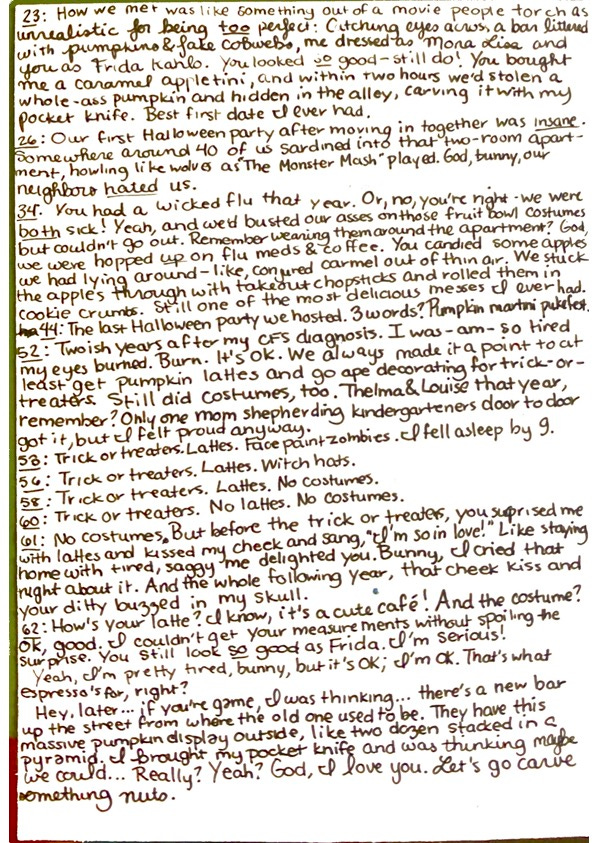 23: How we met was like something out of a movie people torch as
unrealistic for being too perfect: Citching eyes across a bar littered
with pumpkins & fake cobwebs, me dressed as Mona Lisa and
you as Frida Kahlo. You looked so good - still do! You bought
me a caramel appletini, and within two hours we'd stolen a
whole-ass pumpkin and hidden in the alley, carving it with my
pocket knife. Best first date I ever had.
26: Our first Halloween party after moving in together was insane.
Somewhere around 40 of us sardined into that two-room apart-
ment, howling like wolves as "The Monster Mash" played. God, bunny, our
neighbors hated us.
34. You had a wicked flu that year. Or, no, you're right - we were
both sick! Yeah, and we'd busted our asses on those fruit bowl costumes
but couldn't go out. Remember wearing them around the apartment? God,
we were hopped up on flu meds & coffee. You candied some apples
we had lying around - like, conjured carmel out of thin air. We stuck
the apples through with takeout chopsticks and rolled them in
cookie crumbs. Still one of the most delicious messes I ever had.
44: The last Halloween party we hosted. 3 words? Pumpkin martini pukefest.
52: Twoish years after my CFS diagnosis. I was - am - so tired
my eyes burned. Burn. It's OK. We always made it a point to at
least get pumpkin lattes and go ape decorating for trick-or-
treaters. Still did costumes, too. Thelma & Louise that year,
remember? Only one mom shepherding kindergarteners door to door
got it, but I felt proud anyway.
53: Trick or treaters. Lattes. Face paint zombies. I fell asleep by 9.
56: Trick or treaters. Lattes. Witch hats.
58: Trick or treaters. Lattes. No costumes.
60: Trick or treaters. No lattes. No costumes.
61: No costumes. But before the trick or treaters, you suprised me
with lattes and kissed my cheek and sang, "I'm so in love!" Like staying
home with tired, saggy me delighted you. Bunny, I cried that
night about it. And the whole following year, that cheek kiss and
your ditty buzzed in my skull.
62: How's your latte? I know, it's a cute café! And the costume?
Ok, good. I couldn't get your measurements without spoiling the
surprise. You still look so good as Frida. I'm serious!
Yeah, I'm pretty tired, bunny, but it's OK; I'm OK. That's what
espresso's for, right?
Hey, later... if you're game, I was thinking... there's a new bar
up the street from where the old one used to be. They have this
massive pumpkin display outside, like two dozen stacked in a
pyramid. I brought my pocket knife and was thinking maybe
we could... Really? Yeah? God, I love you. Let's go carve
something nuts.